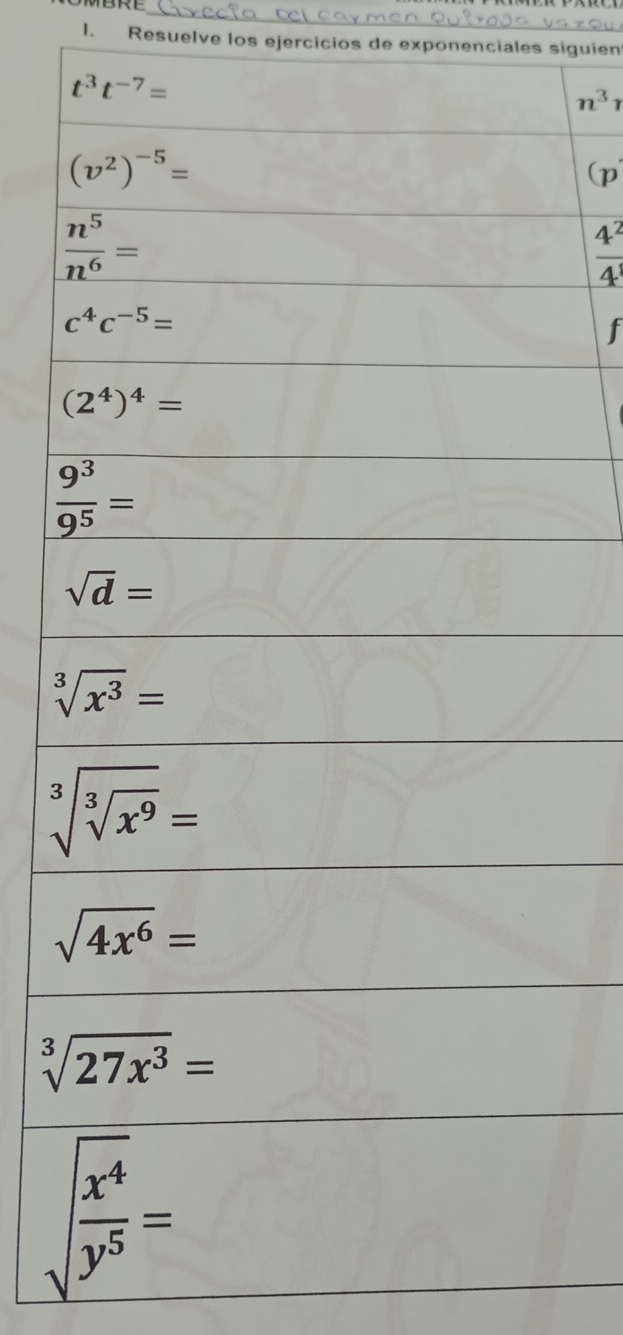 NOMBRE Grecia del carmen Quiroga vazqu
I. Resuelve los ejercicios de exponenciales siguien
t³t⁻⁷= n³
(v²)⁻⁵= (p
n⁵/n⁶ = 4²/4
c⁴c⁻⁵= f
(2⁴)⁴ = (
9³/9⁵ =
√d =
∛x³ =
∛∛x⁹ =
√4x⁶ =
∛27x³ =
√(x⁴/y⁵) =